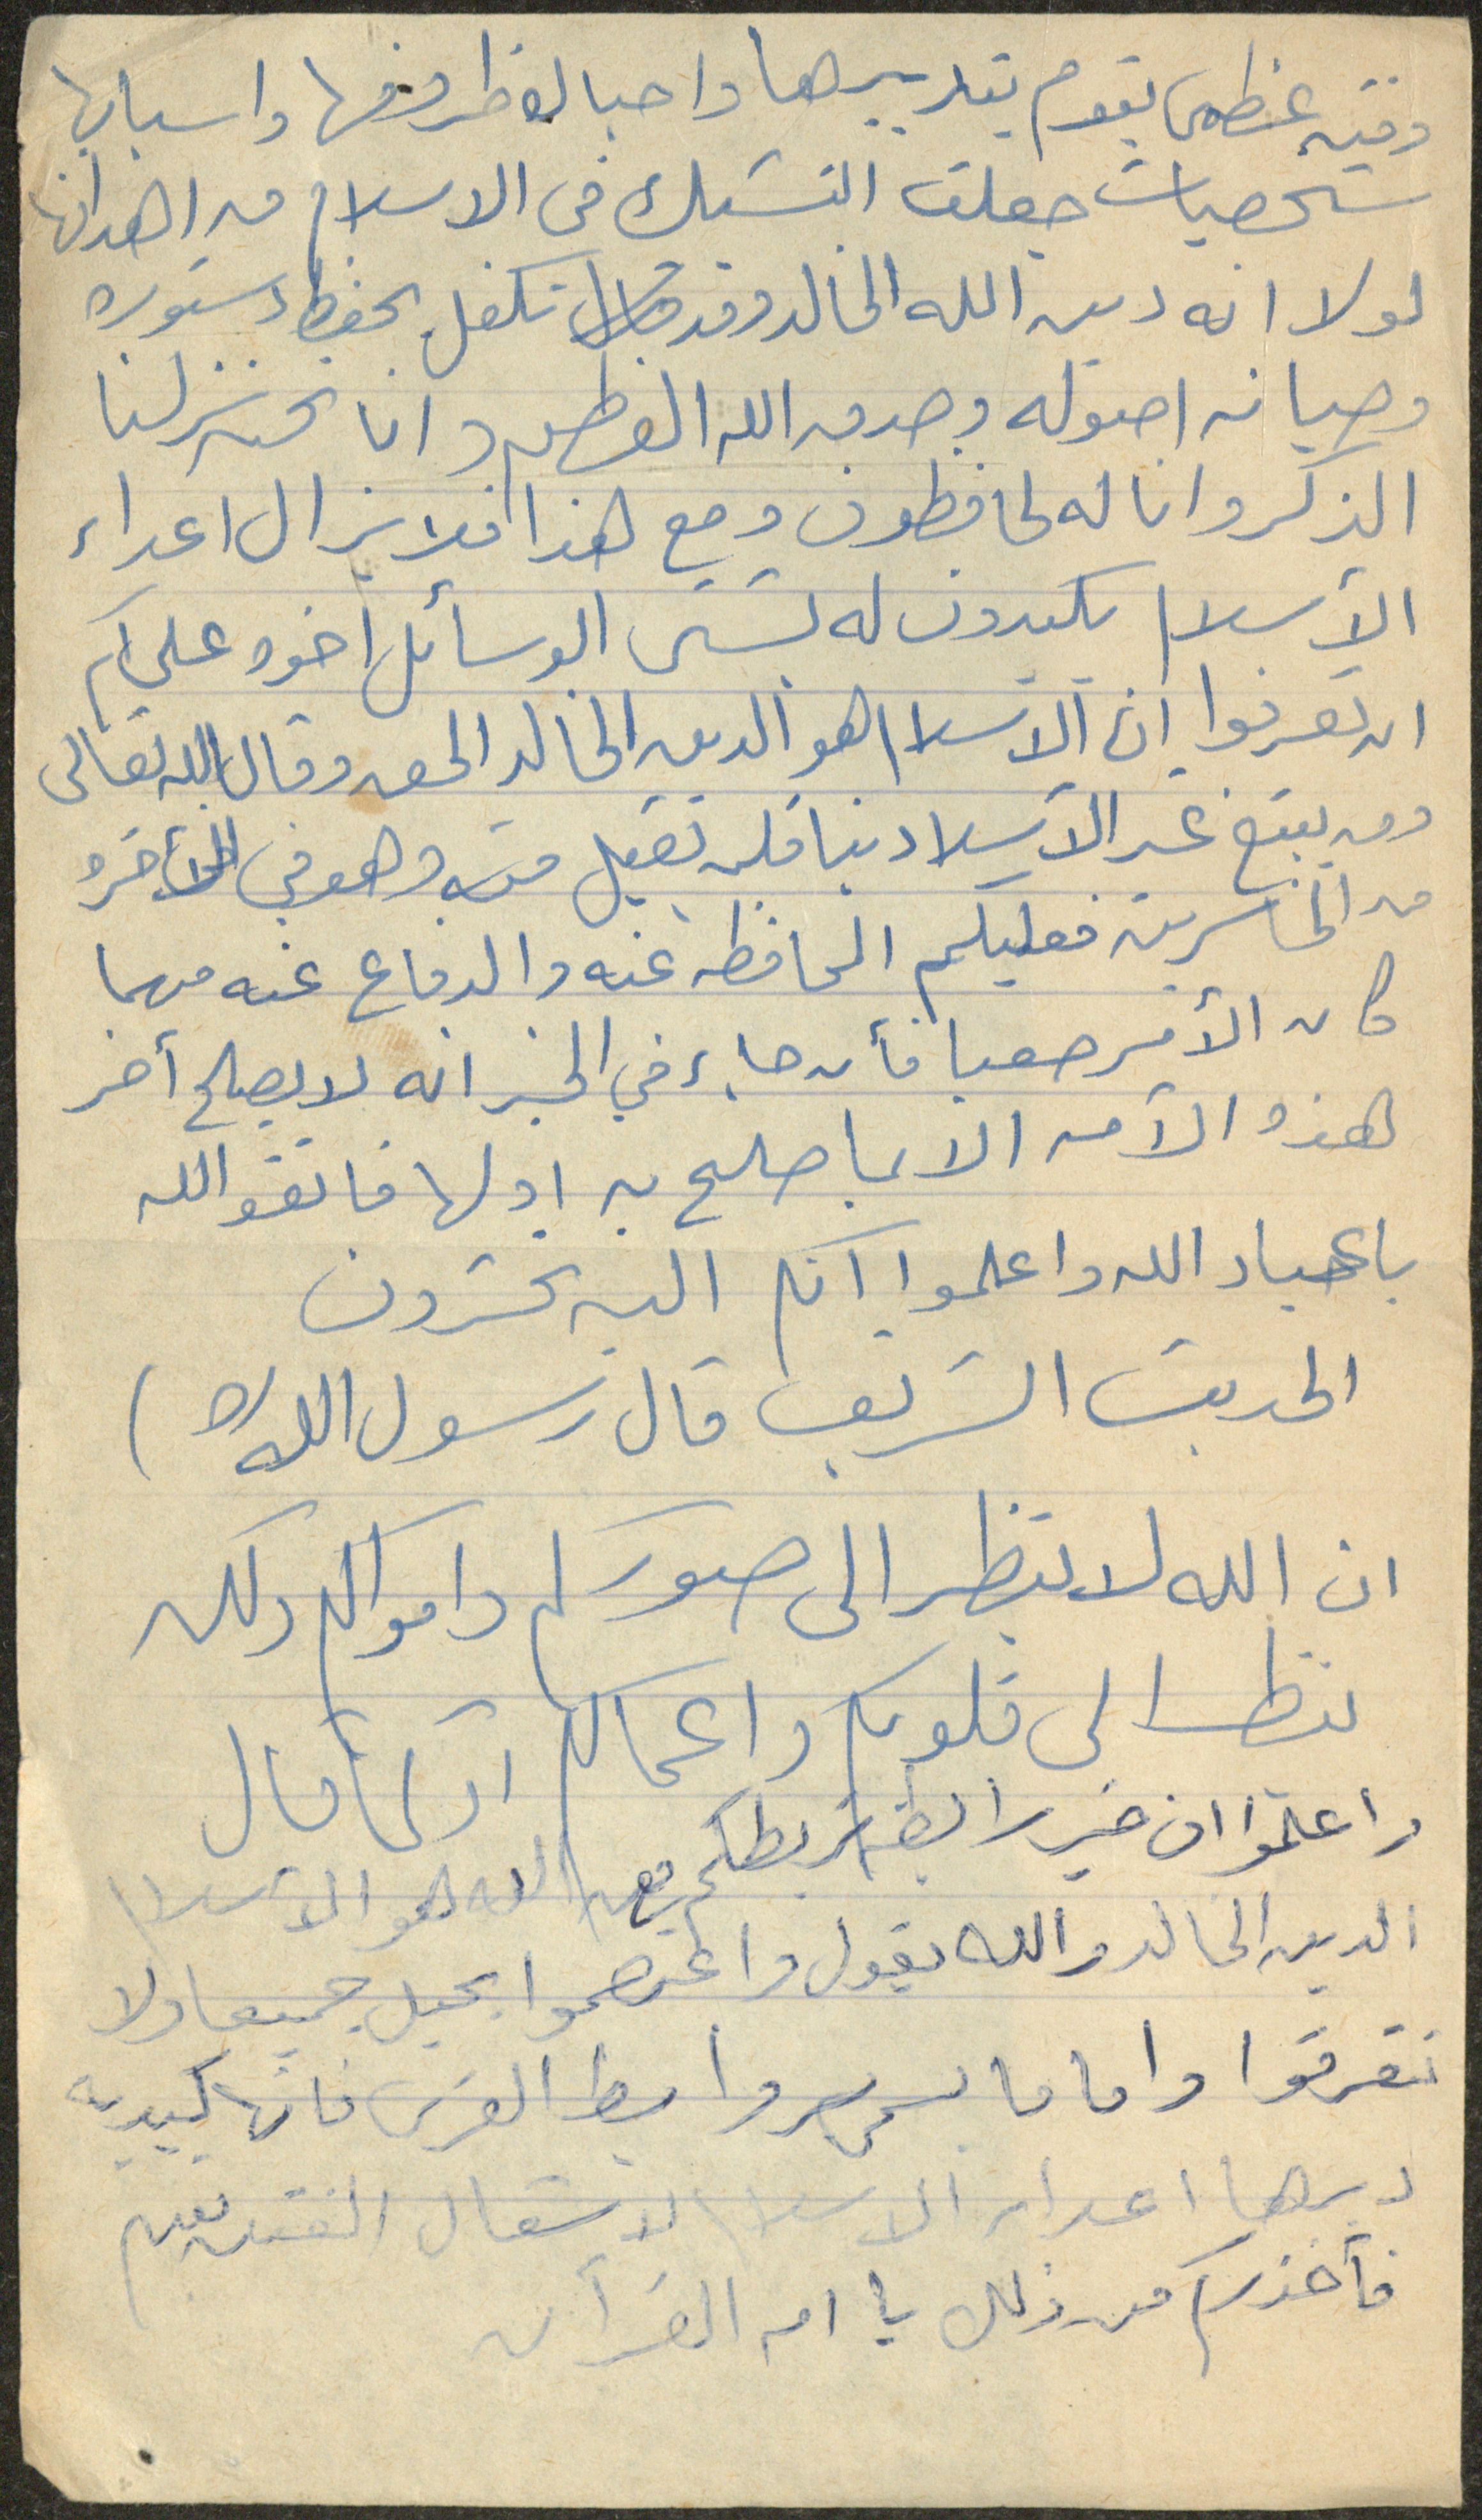 وفتنه عظمى يقوم بتدبيرها واحباك ظروفها واسبابها
شخصيات جعلت التشكيك في الاسلام من اهدافها
لولا انه دين الله الخالد وقد تكفل بحفظ دستوره
وصيانه اصوله وصدق الله العظيم وانا نحن نزلنا
الذكر وانا له لحافظون ومع هذا فلا يزال اعداء
الأسلام يكيدون له بشتى الوسائل اخوه عليكم
ان تعرفوا ان الأسلام هو الدين الخالد الحق وقال الله تعالى
ومن يبتغ غير الأسلام دينا فلن تقبل منه وهو في الأخره
من الخاسرين فعليكم المحافظه عنه والدفاع عنه مهما
كان الأمر صعبا فأن جاء في الخبر انه لا يصلح أخر
هذه الأمه الا بما صلح به اولها فاتقو الله
ياعباد الله واعلموا انكم اليه تحشرون
الحديث الشريف قال رسول الله )
ان الله لا ينظر الى صوركم واموالكم ولكن
ينظر الى قلوبكم واعمالكم او كما قال
واعلموا ان خير رابطه تربطكم الله هو الأسلام
الدين الخالد والله يقول واعتصموا بحبل جميعا ولا
تفرقوا واما ما يسمى روابط القربى فانها
دبرها اعداء الاسلام لاشعال الفتن بينهم
فأحذركم من ذلك يا امه القرآن